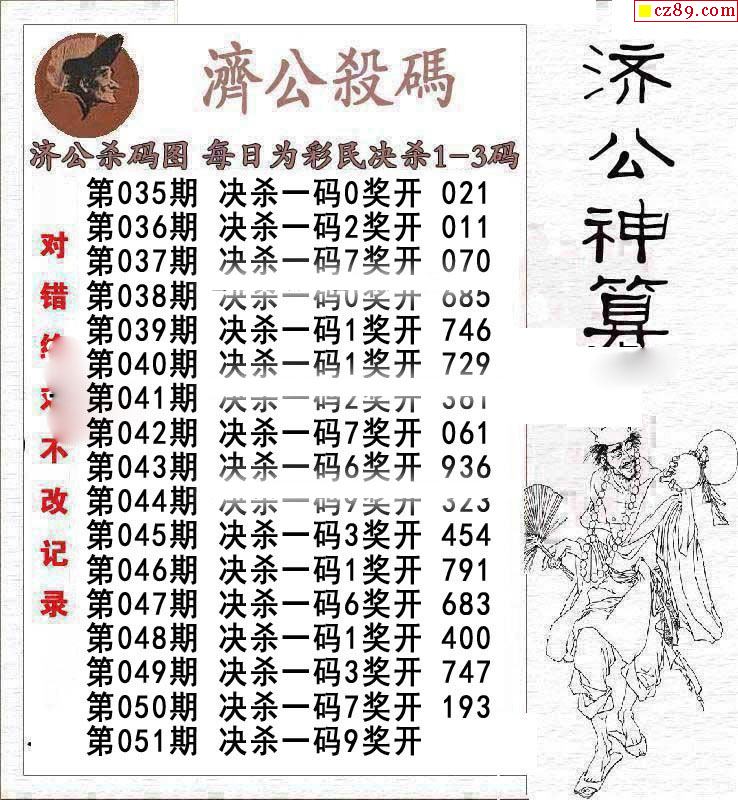 cz89.com
濟公殺碼
济公杀码图 每日为彩民决杀1-3码
第035期 决杀一码0奖开 021
第036期 决杀一码2奖开 011
第037期 决杀一码7奖开 070
第038期 决杀一码0奖开 685
第039期 决杀一码1奖开 746
第040期 决杀一码1奖开 729
第041期 决杀一码2奖开 381
第042期 决杀一码7奖开 061
第043期 决杀一码6奖开 936
第044期 决杀一码9奖开 323
第045期 决杀一码3奖开 454
第046期 决杀一码1奖开 791
第047期 决杀一码6奖开 683
第048期 决杀一码1奖开 400
第049期 决杀一码3奖开 747
第050期 决杀一码7奖开 193
第051期 决杀一码9奖开
对错绝对不改记录
济公神算